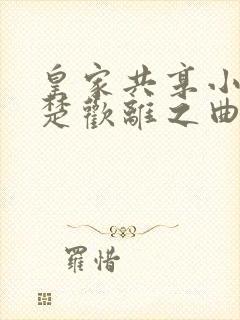 皇家共享小
楚歡離之曲
羅惜